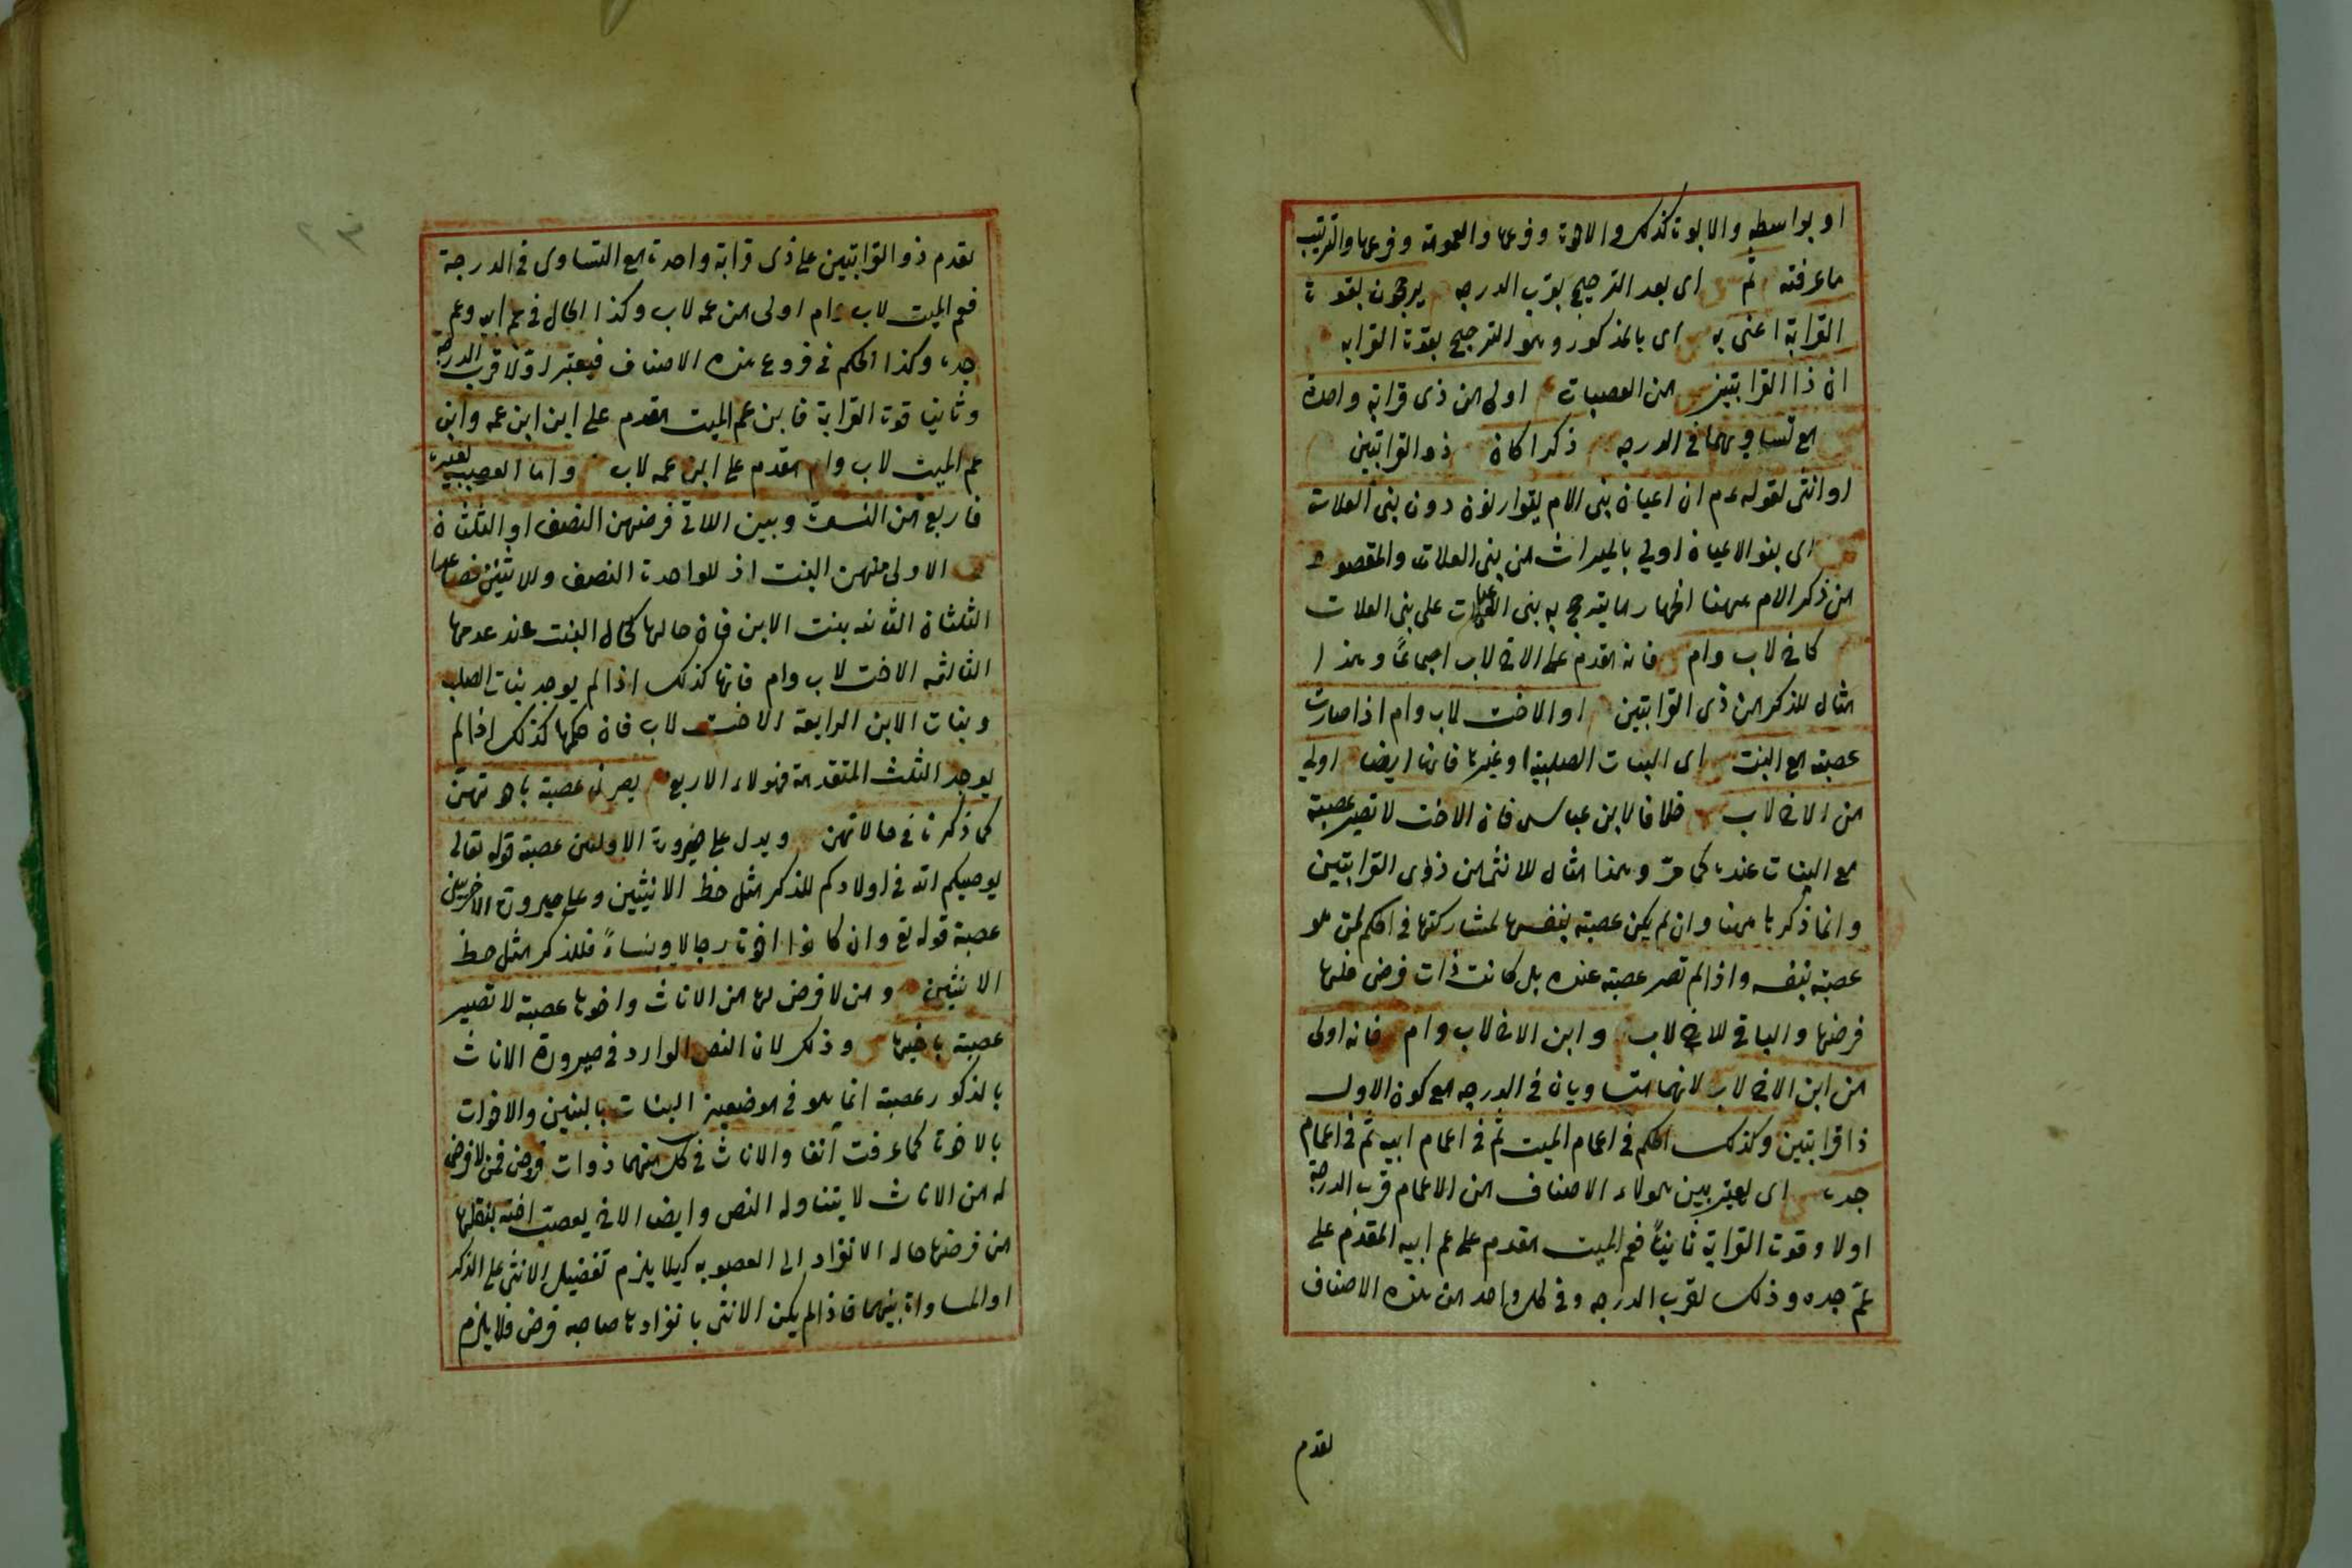 او بواسطه والابوة كذلك والاخوة وفرعها والعمومة وفرعها والترتيب
ما عرفته ثم اى بعد الترجيح بقرب الدرجه يرجحون بقوة
القرابة اعنى به اى بالمذكور وهو الترجيح بقوة القرابه
ان ذا القرابتين من العصبات اولى من ذى قرابة واحدة
مع تساويهما فى الدرجه ذكرا كان ذو القرابتين
او انثى لقوله عم ان اعيان بنى الام يتوارثون دون بنى العلات
اى بنو الاعيان اولى بالميراث من بنى العلات والمقصود
من ذكر الام ههنا اظهار ما يترجح به بنى الاعيان على بنى العلات
كالاخ لاب وام فانه مقدم على الاخ لاب اجماعًا وهذا
مثال للذكر من ذى القرابتين او الاخت لاب وام اذا صارت
عصبة مع البنت اى البنات الصلبية او غيرها فانها ايضا اولى
من الاخ لاب خلافا لابن عباس فان الاخت لا تصير عصبة
مع البنات عنده كما مرّ وهذا مثال للانثى من ذوى القرابتين
وانما ذكرها ههنا وان لم يكن عصبة بنفسها لمشاركتها فى الحكم لمن هو
عصبة بنفسه واذا لم تصر عصبة عنده بل كانت ذات فرض فلها
فرضها والباقى للاخ لاب وابن الاخ لاب وام فانه اولى
من ابن الاخ لاب لانهما متساويان فى الدرجه مع كون الاول
ذا قرابتين وكذلك الحكم فى اعمام الميت ثم فى اعمام ابيه ثم فى اعمام
جده اى يعتبر بين هولاء الاصناف من الاعمام قرب الدرجة
اولا وقوة القرابة ثانياً فعم الميت مقدم على عم ابيه المقدم على
عمّ جده وذلك لقرب الدرجه وفى كل واحد من هذه الاصناف
يقدم
٢٣
يقدم ذو القرابتين على ذى قرابة واحدة مع التساوى فى الدرجة
فعم الميت لاب وام اولى من عمه لاب وكذا الحال فى عم ابيه وعم
جده وكذا الحكم فى فروع هذه الاصناف فيعتبر اولا قرب الدرجة
وثانيا قوة القرابة فابن عم الميت مقدم على ابن ابن عمه وابن
عم الميت لاب وام مقدم على ابن عمه لاب واما العصبة بغيره
فاربع من النسوة وبين اللاتى فرضهن النصف او الثلثان
الاولى منهن البنت اذ للواحدة النصف وللاثنين فصاعدا
الثلثان الثانيه بنت الابن فان حالها كحال البنت عند عدمها
الثالثه الاخت لاب وام فانها كذلك اذا لم يوجد بنات الصلب
وبنات الابن الرابعة الاخت لاب فان حكمها كذلك اذا لم
يوجد الثلث المتقدمة فهولاء الاربع يصرن عصبة باخوتهن
كما ذكرنا فى حالاتهن ويدل على صيرورة الاوليين عصبة قوله تعالى
يوصيكم الله فى اولادكم للذكر مثل حظ الانثيين وعلى صيرورة الاخريين
عصبة قوله تع وان كانوا اخوة رجالا ونساءً فللذكر مثل حظ
الانثيين ومن لا فرض لها من الاناث واخوها عصبة لا تصير
عصبة باخيها وذلك لان النص الوارد فى صيرورة الاناث
بالذكور عصبة انما هو فى موضعين البنات بالبنين والاخوات
بالاخوة كما عرفت آنفا والاناث فى كل منهما ذوات فروض فمن لا فرض
له من الاناث لا يتناوله النص وايضا الاخ يعصب اخته بنقلها
من فرضها حالة الانفراد الى العصوبه كيلا يلزم تفضيل الانثى على الذكر
او المساواة بينهما فاذا لم يكن الانثى بانفرادها صاحبه فرض فلا يلزم